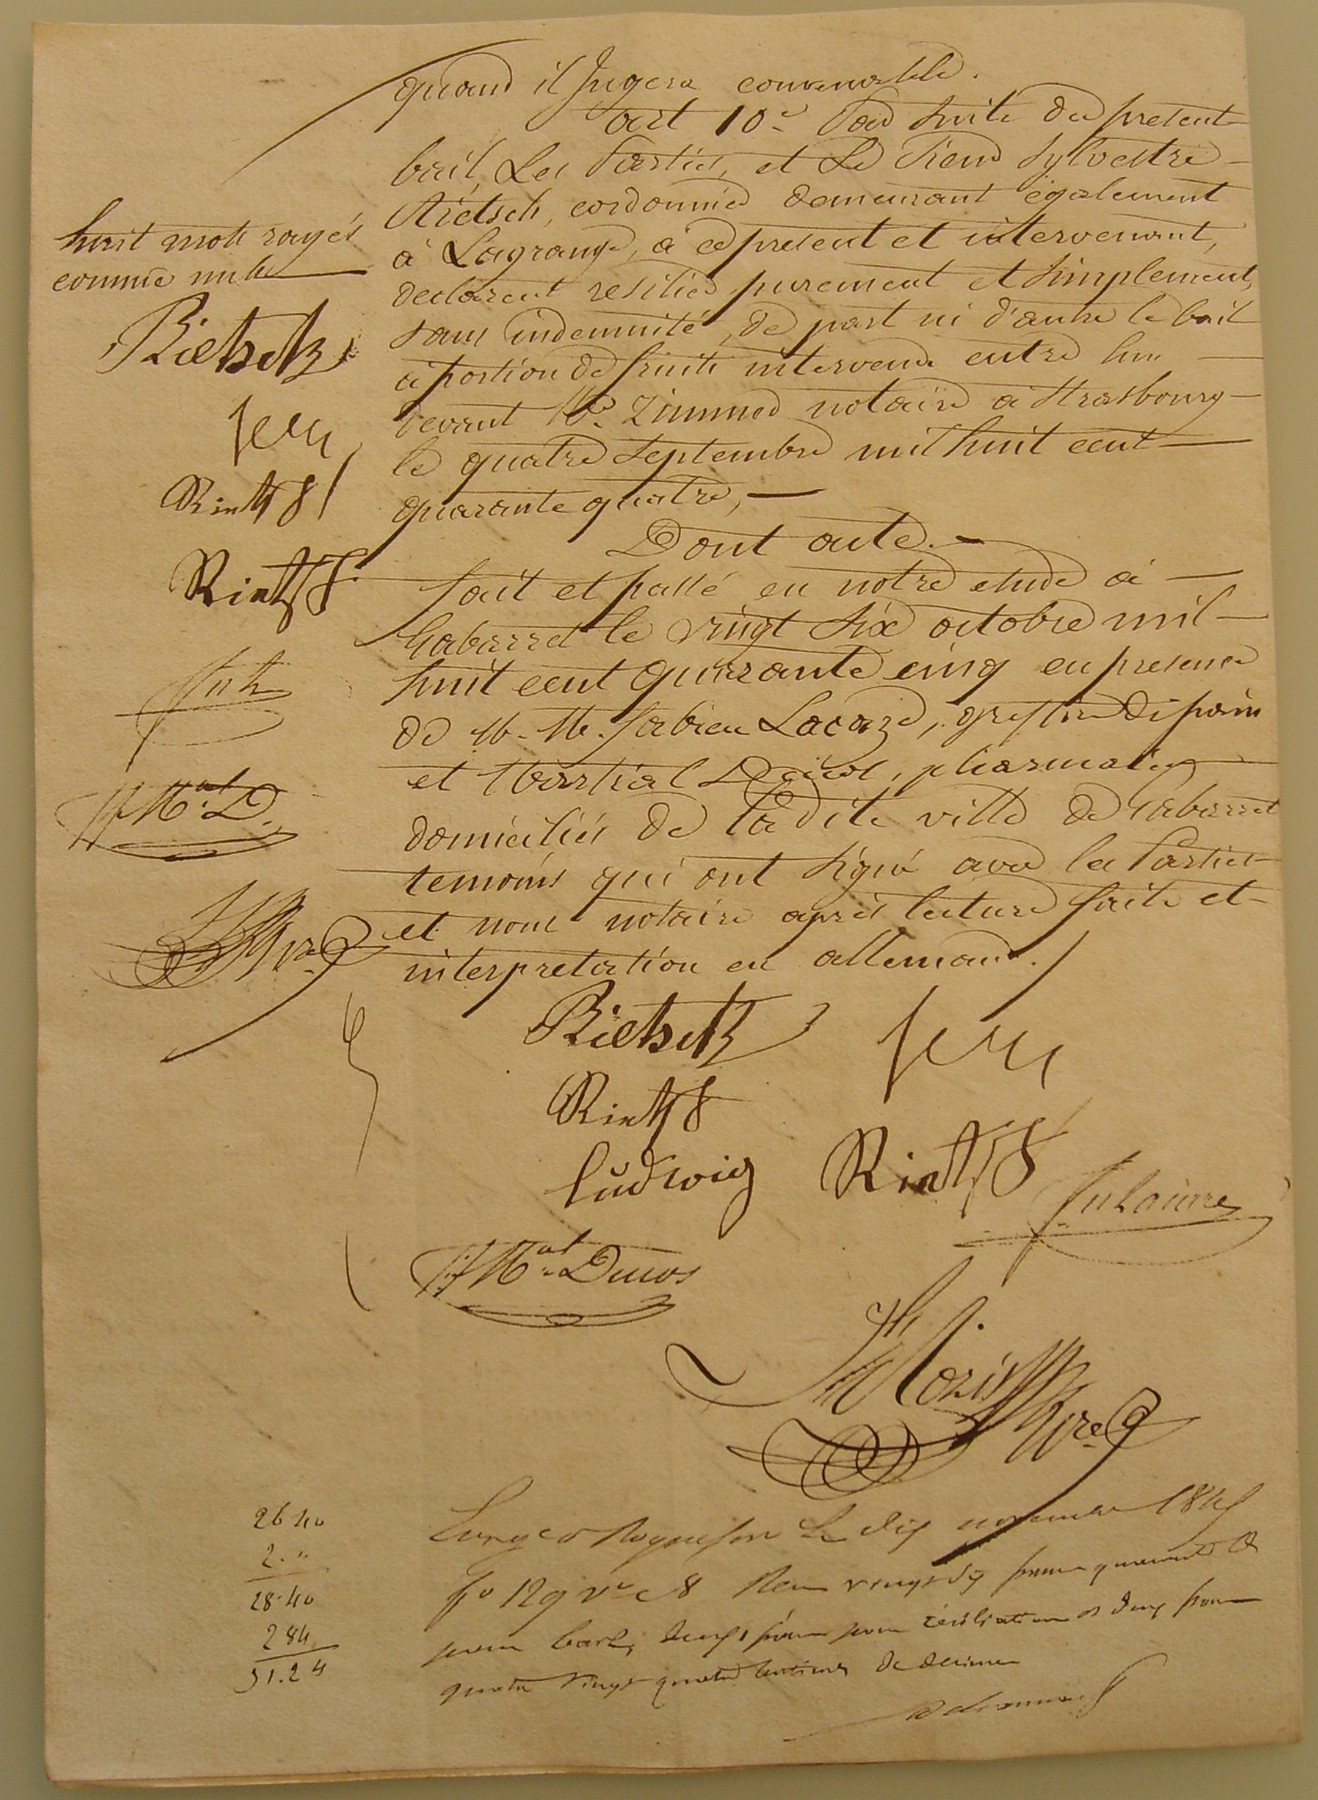 quand il Jugera convenable.
art 10e. Par suite du present
bail, Les Parties, et Le Sieur Sylvestre
Rietsch, cordonnier demeurant également
à Lagrange, à ce present et intervenant,
declarent resilier purement et simplement,
sans indemnité, de part ni d'autre le bail
à portion de fruits intervenu entre eux
devant Me. Zimmer notaire à Strasbourg
le quatre Septembre mil huit cent
quarante quatre,
Dont acte.
fait et passé en notre etude à
Gabarret le vingt six octobre mil
huit cent quarante cinq en presence
de M. M. fabien Lacaze, greffier de paix
et Martial Ducos, pharmacien
domiciliés de la dite ville de Gabarret
temoins qui ont signé avec les Parties
et nous notaire après lecture faite et
interpretation en allemand.
huit mots rayés
comme nuls
Rietsch
Rietsch
Ludwig
Mal Ducos
26.40
2. "
28.40
2 84
31.24
le dix novembre 1845
fo 129 vo c 8 Reçu vingt six francs quarante c
pour bail, deux francs pour résiliation et deux francs
quatre vingt quatre centimes de decime